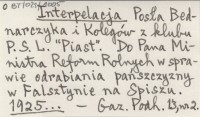 Interpelacja Posła Bed-
narczyka i Kolegów z klubu
P.S.L. "Piast". Do Pana Mi-
nistra Reform Rolnych w spra-
wie odrabiania pańszczyzny
w Falsztynie na Spiszu.
1925... — Gaz. Podh. 13, nr 2.